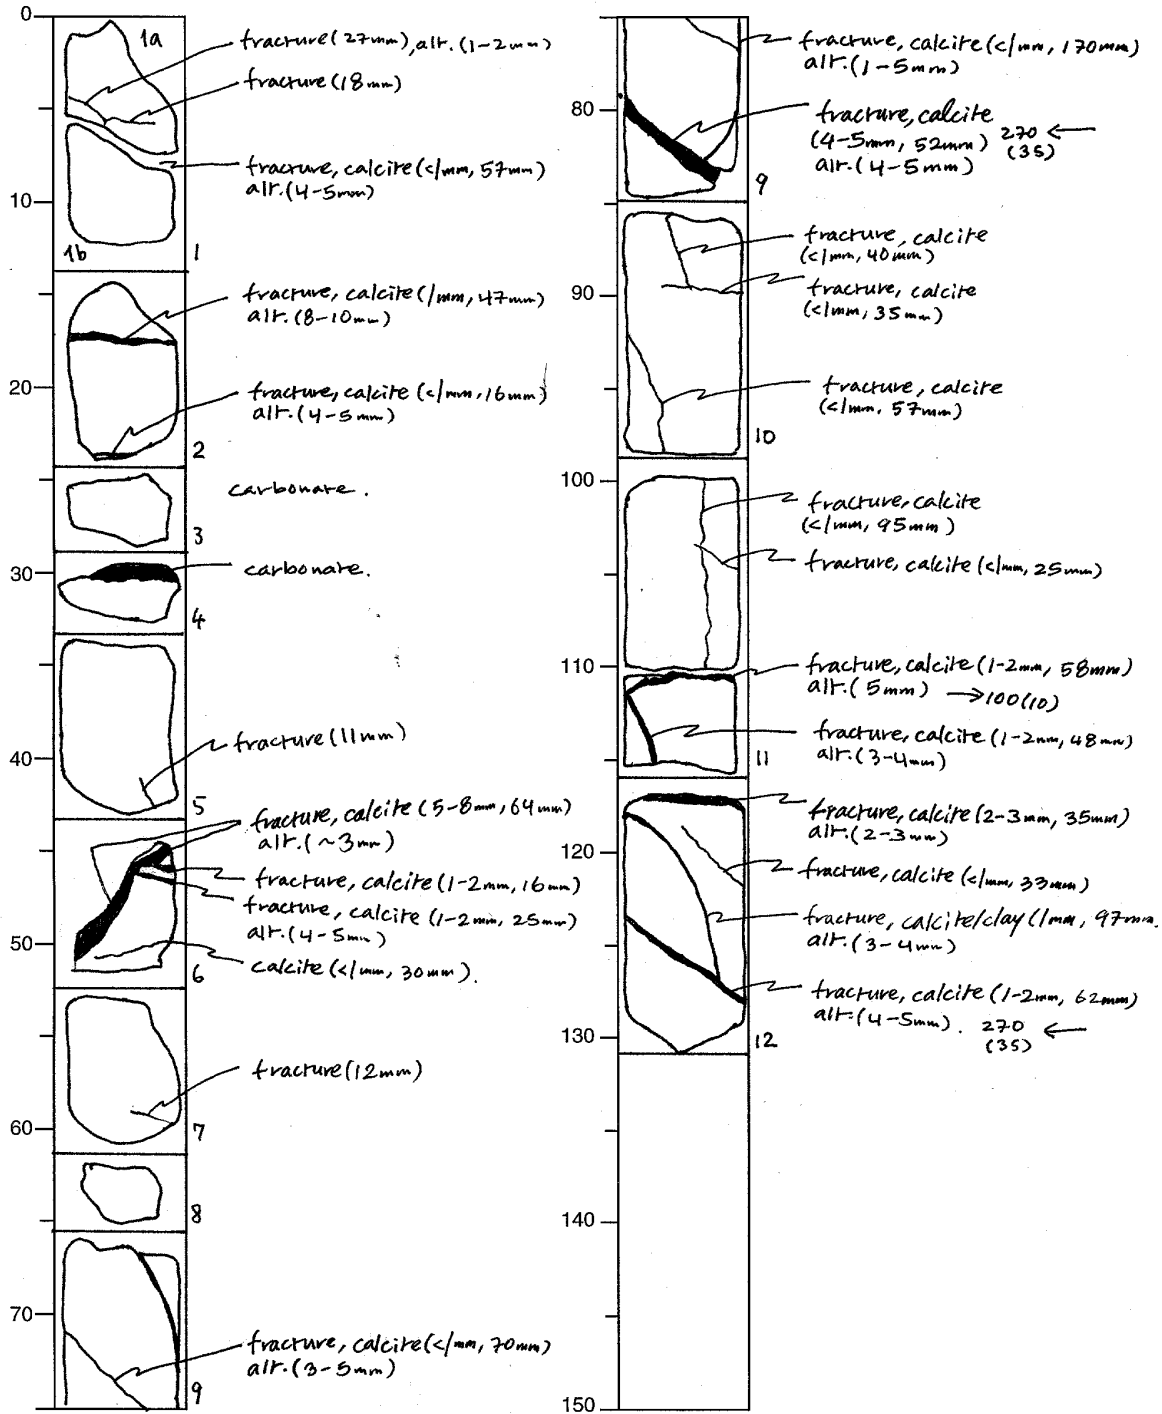 0
1a
fracture(27mm), alt.(1-2mm)
fracture(18mm)
fracture, calcite(<1mm, 57mm)
alt.(4-5mm)
10
1b
1
fracture, calcite(1mm, 47mm)
alt.(8-10mm)
20
fracture, calcite(<1mm, 16mm)
alt.(4-5mm)
2
carbonate.
3
30
carbonate.
4
fracture(11mm)
40
5
fracture, calcite(5-8mm, 64mm)
alt.(~3mm)
fracture, calcite(1-2mm, 16mm)
fracture, calcite(1-2mm, 25mm)
alt.(4-5mm)
50
6
calcite(<1mm, 30mm).
fracture(12mm)
60
7
8
70
fracture, calcite(<1mm, 70mm)
alt.(3-5mm)
9
fracture, calcite(<1mm, 170mm)
alt.(1-5mm)
80
fracture, calcite
(4-5mm, 52mm) 270 ←
alt.(4-5mm) (35)
9
fracture, calcite
(<1mm, 40mm)
90
fracture, calcite
(<1mm, 35mm)
fracture, calcite
(<1mm, 57mm)
10
100
fracture, calcite
(<1mm, 95mm)
fracture, calcite(<1mm, 25mm)
110
fracture, calcite(1-2mm, 58mm)
alt.(5mm) →100(10)
fracture, calcite(1-2mm, 48mm)
alt.(3-4mm)
11
fracture, calcite(2-3mm, 35mm)
alt.(2-3mm)
120
fracture, calcite(<1mm, 33mm)
fracture, calcite/clay(1mm, 97mm.
alt.(3-4mm)
fracture, calcite(1-2mm, 62mm)
alt.(4-5mm). 270 ←
(35)
130
12
140
150